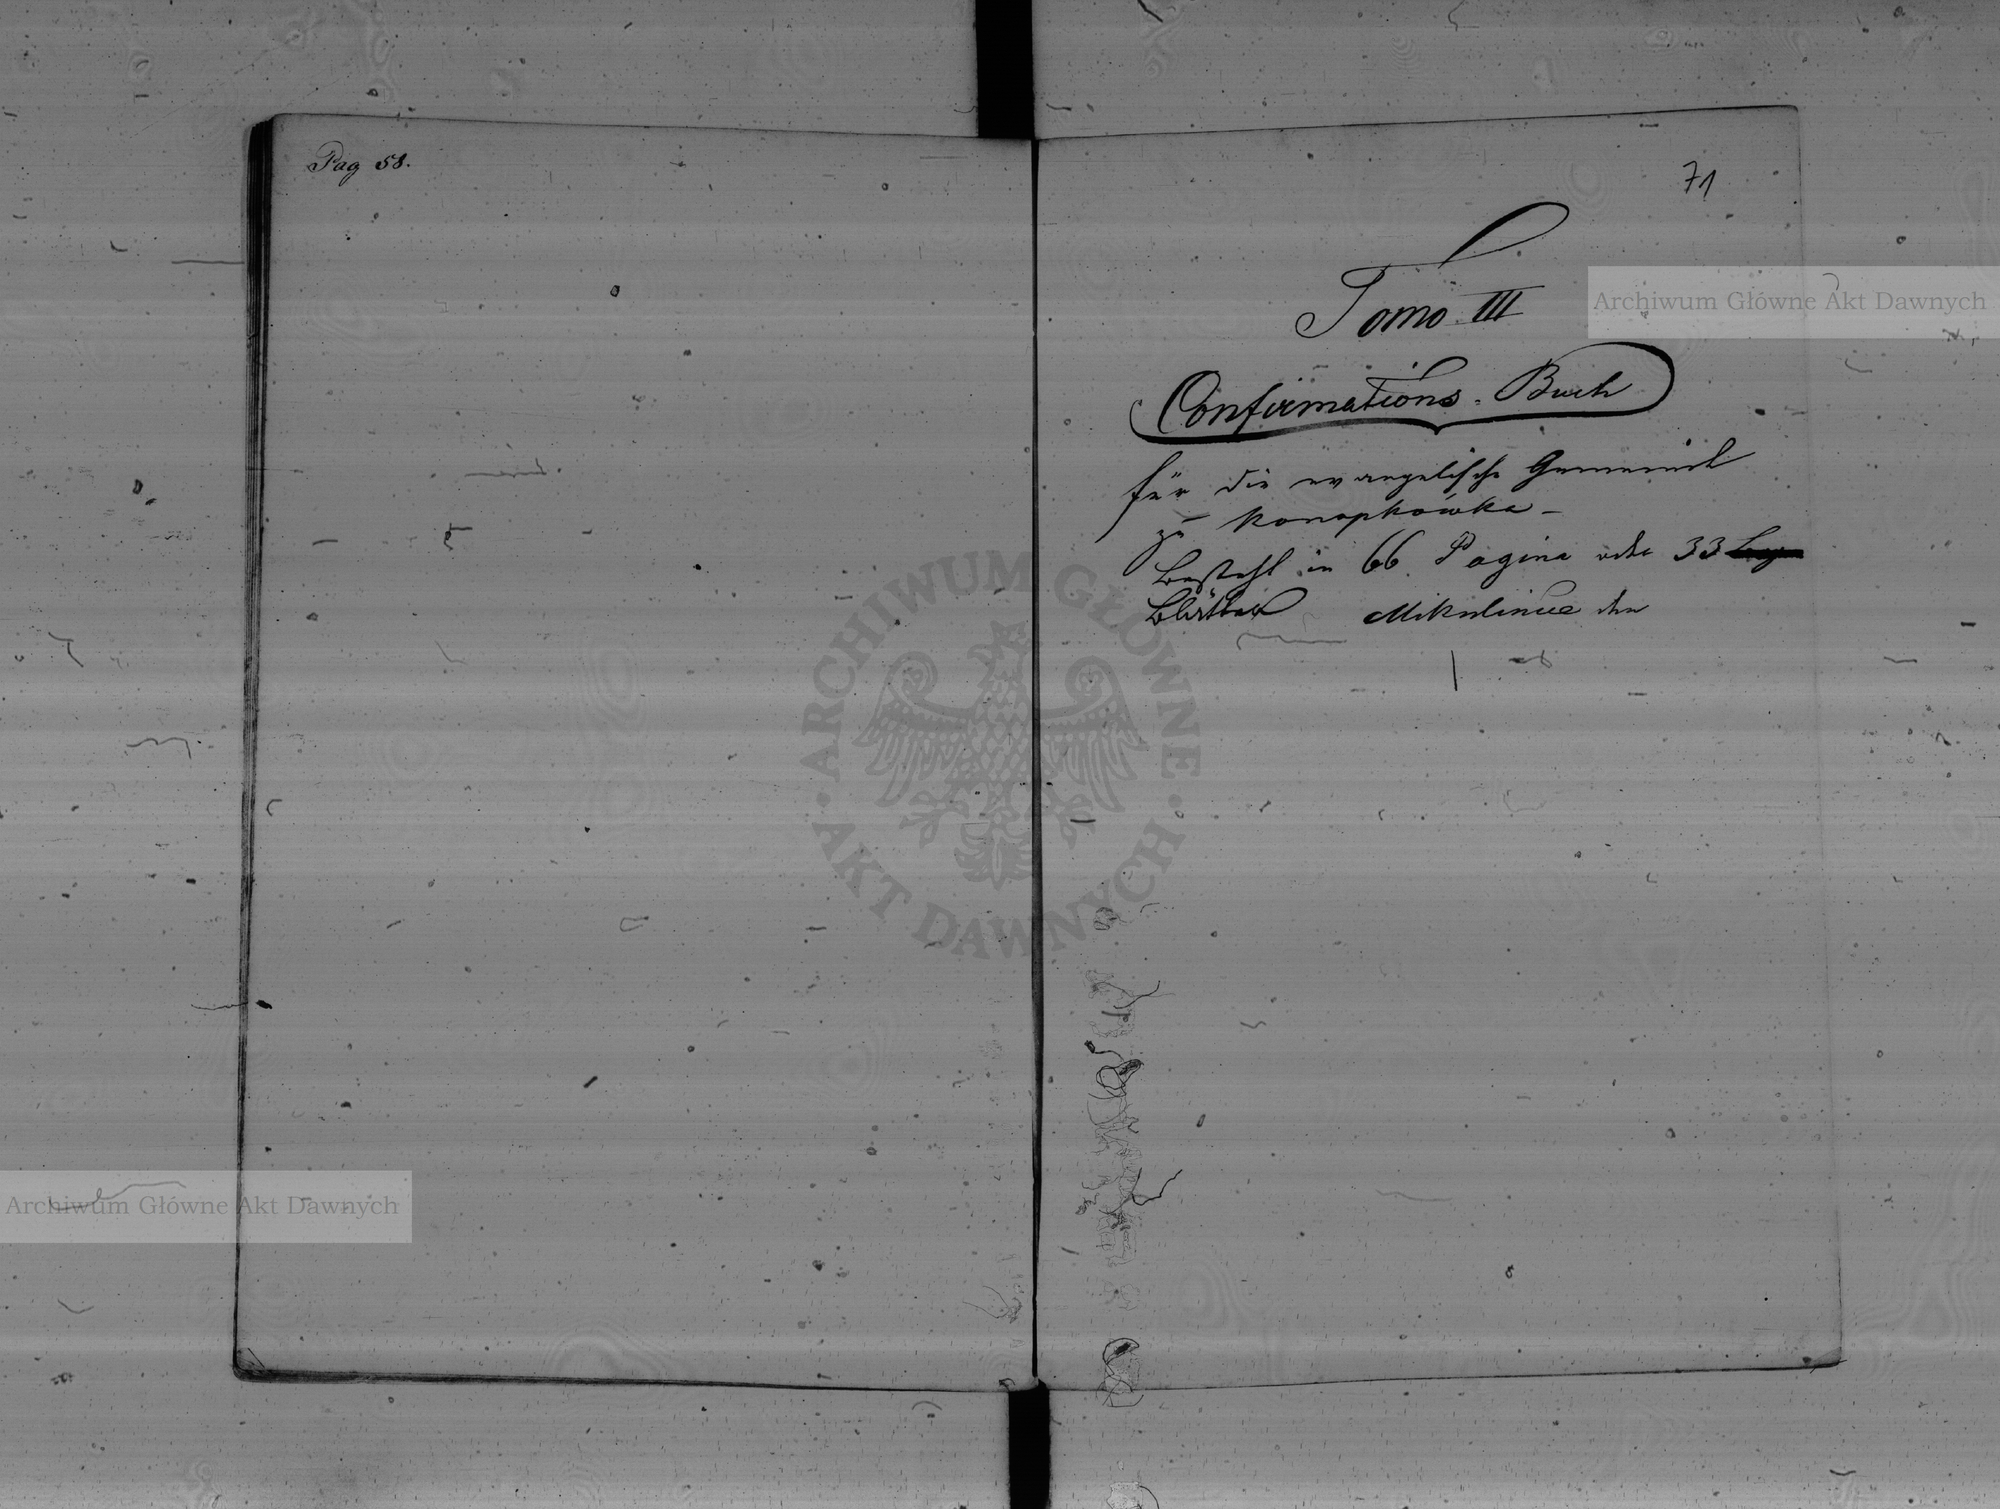 Pag 58.
71
Tomo III
Confirmations-Buch
für die evangelische Gemeinde
zu Konopkówka -
besteht in 66 Pagina oder 33
Blätter Mikulince den
Archiwum Główne Akt Dawnych
ARCHIWUM GŁÓWNE AKT DAWNYCH
Archiwum Główne Akt Dawnych